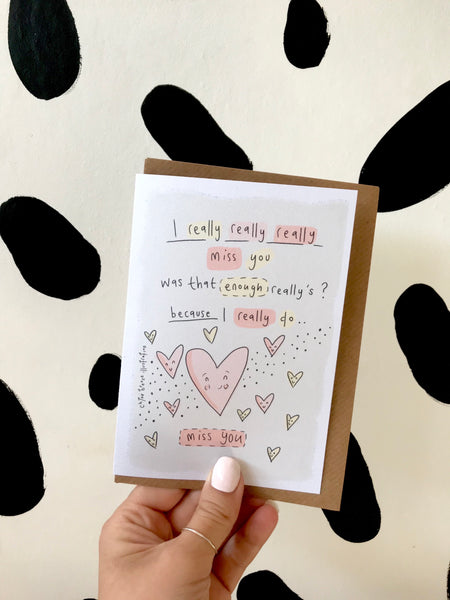 I really really really
miss you
was that enough really's ?
because I really do..
miss you